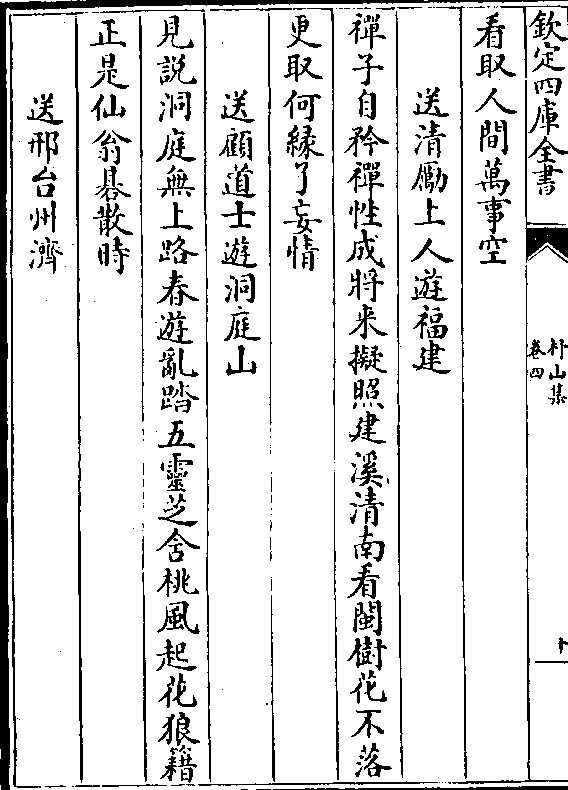 欽定四庫全書
杼山集
卷四
十
看取人間萬事空
送清勵上人遊福建
禪子自矜禪性成將来擬照建溪清南看閩樹花不落
更取何縁了妄情
送顧道士遊洞庭山
見說洞庭無上路春遊亂踏五靈芝含桃風起花狼籍
正是仙翁碁散時
送邢台州濟